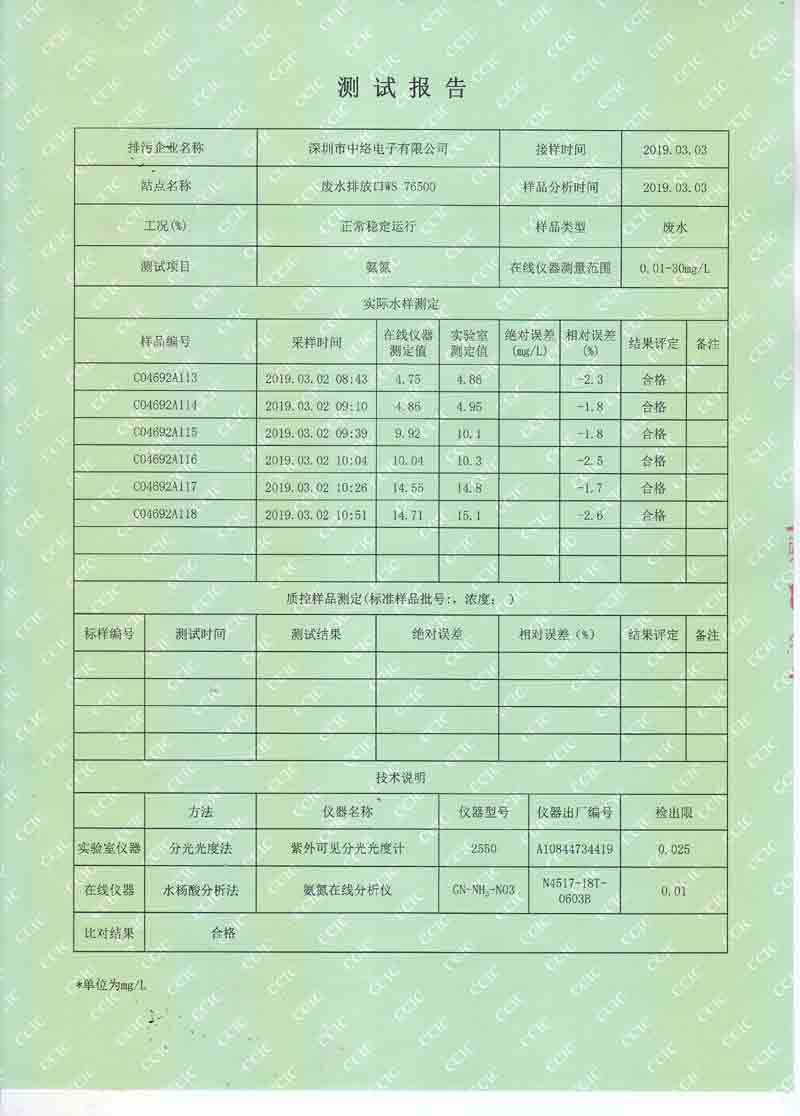 测试报告
排污企业名称 深圳市中络电子有限公司 接样时间 2019.03.03
站点名称 废水排放口WS 76500 样品分析时间 2019.03.03
工况(%) 正常稳定运行 样品类型 废水
测试项目 氨氮 在线仪器测量范围 0.01-30mg/L
实际水样测定
样品编号 采样时间 在线仪器测定值 实验室测定值 绝对误差(mg/L) 相对误差(%) 结果评定 备注
C04692A113 2019.03.02 08:43 4.75 4.86 -2.3 合格
C04692A114 2019.03.02 09:10 4.86 4.95 -1.8 合格
C04692A115 2019.03.02 09:39 9.92 10.1 -1.8 合格
C04692A116 2019.03.02 10:04 10.04 10.3 -2.5 合格
C04692A117 2019.03.02 10:26 14.55 14.8 -1.7 合格
C04692A118 2019.03.02 10:51 14.71 15.1 -2.6 合格
质控样品测定(标准样品批号:，浓度： )
标样编号 测试时间 测试结果 绝对误差 相对误差（%） 结果评定 备注
技术说明
方法 仪器名称 仪器型号 仪器出厂编号 检出限
实验室仪器 分光光度法 紫外可见分光光度计 2550 A10844734419 0.025
在线仪器 水杨酸分析法 氨氮在线分析仪 GN-NH₃-N03 N4517-18T-0603B 0.01
比对结果 合格
*单位为mg/L